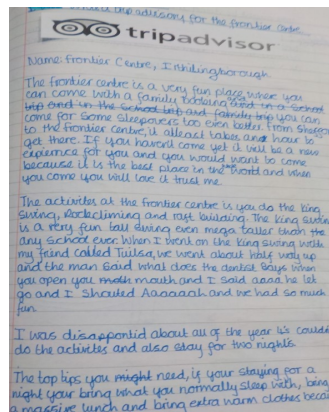 tripadvisory for the frontier centre
tripadvisor
Name: frontier Centre, Irthlingborough
The frontier centre is a very fun place, where you
can come with a family booking and in a school
trip and in the school trip and family trip you can
come for some sleepovers too even better. from
to the frontier centre, it alleast takes and hour to
get there. If you haven't come yet it will be a new
expirience for you and you would want to come
because it is the best place in the world and when
you come you will love it trust me.
The activites at the frontier centre is you do the king
swing, Rockcliming and raft building. The king swing
is a very fun tall swing even mega taller than the
any school ever. When I went on the king swing with
my friend called we went about half way up
and the man said what does the dentist says when
you open you moth mouth and I said aaaa he let
go and I shouted Aaaaaah and we had so much
fun.
I was disappontid about all of the year 4s couldn't
do the activites and also stay for two nights.
The top tips you might need, if your staying for a
night your bring what you normally sleep with, bring
a massive lunch and bring extra warm clothes